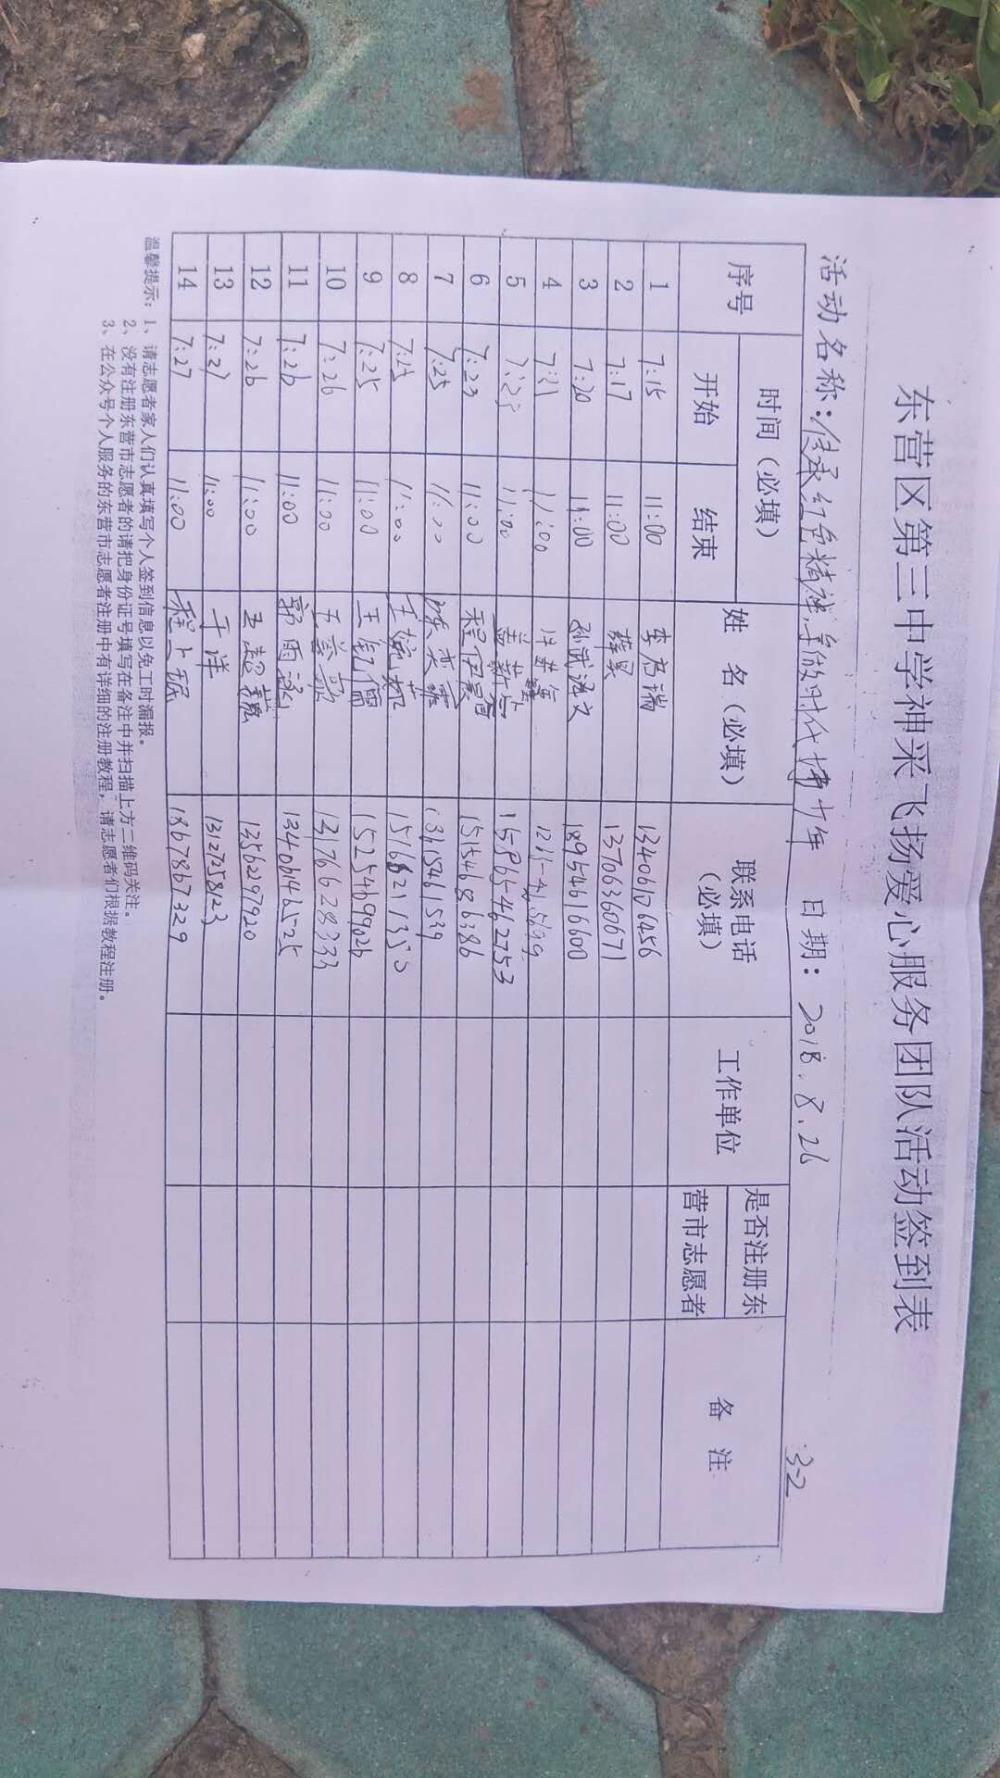 东营区第三中学神采飞扬爱心服务团队活动签到表
3-2
活动名称:传承红色精神,争做时代好少年 日期: 2018.8.26
序号 时间(必填) 姓 名(必填) 联系电话(必填) 工作单位 是否注册东营市志愿者 备 注
开始 结束
1 7:15 11:00 13406106456
2 7:17 11:00 薛昊 13706360671
3 7:20 11:00 18954616600
4 7:21 11:00
5 7:23 11:00 15865462753
6 7:23 11:00 15154686386
7 7:25 11:00 13615461539
8 7:25 11:00 王婉茹
9 7:25 11:00 15254690902b
10 7:26 11:00 13176628333
11 7:26 11:00 郭雨涵 13406465525
12 7:26 11:00 王超巍 13562297920
13 7:27 11:00 于洋
14 7:27 11:00 程上珉 1867867329
温馨提示: 1、请志愿者家人们认真填写个人签到信息以免工时漏报。
2、没有注册东营市志愿者的请把身份证号填写在备注中并扫描上方二维码关注。
3、在公众号个人服务的东营市志愿者注册中有详细的注册教程,请志愿者们根据教程注册。